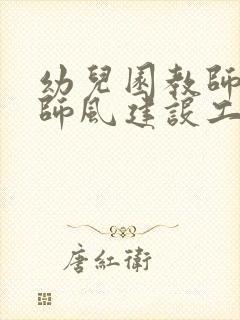 幼兒園教師
師風建設工
唐紅衛